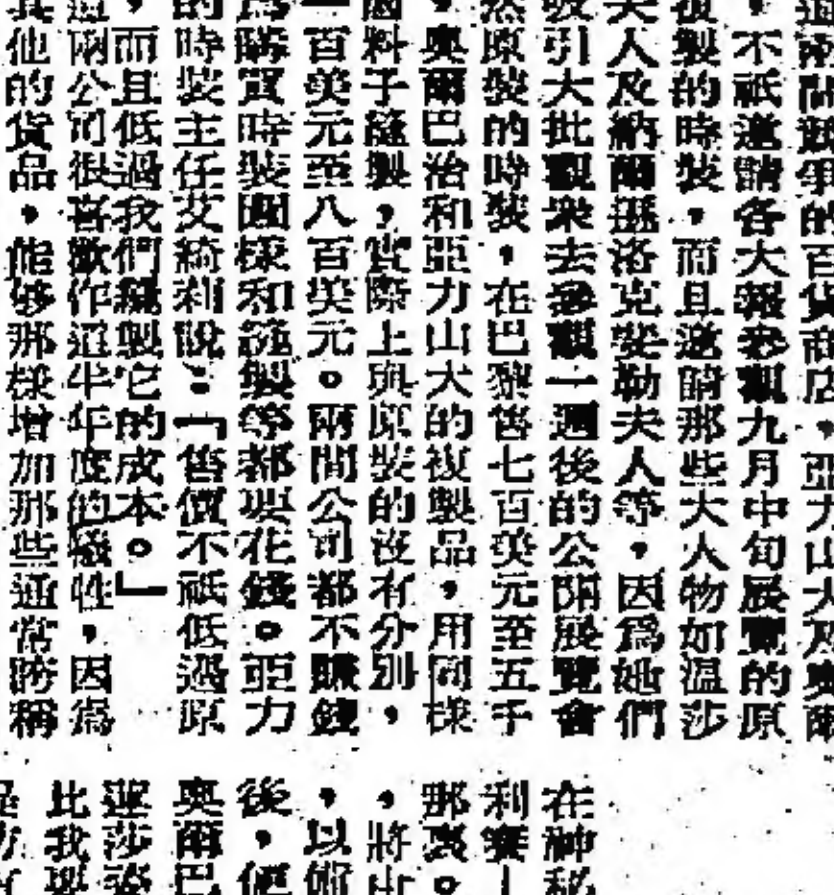 這兩間競爭的百貨商店，亞力山大及奧爾
，不祇邀請各大報參觀九月中旬展覽的原
複製的時裝，而且邀請那些大人物如溫莎
夫人及納爾遜洛克斐勒夫人等，因爲她們
吸引大批觀衆去參觀一週後的公開展覽會
然原裝的時裝，在巴黎售七百美元至五千
，奧爾巴治和亞力山大的複製品，用同樣
料子縫製，實際上與原裝的沒有分別，
一百美元至八百美元。兩間公司都不賺錢
爲購買時裝圖樣和縫製等都要花錢。亞力
的時裝主任艾綺利說：「售價不祇低過原
，而且低過我們縫製它的成本。」
這兩公司很喜歡作這半年度的犧牲，因爲
其他的貨品，能够那樣增加那些通常誇稱
在神秘
利賽
那裏。
，將
，以
後，便
奧爾巴
莎
此我